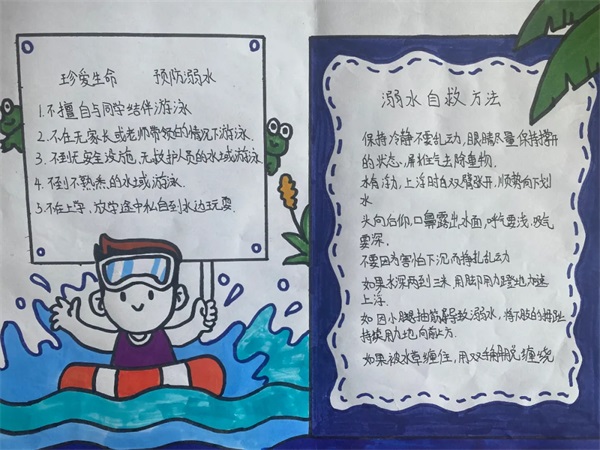 珍爱生命 预防溺水
1.不擅自与同学结伴游泳
2.不在无家长或老师带领的情况下游泳.
3.不到无安全设施,无救护人员的水域游泳
4.不到不熟悉的水域游泳.
5.不在上学,放学途中私自到水边玩耍.
溺水自救方法
保持冷静不要乱动,眼睛尽量保持撑开
的状态.屏住气去除重物.
上浮时白双臂张开,顺势向下划
水
头向后仰,口鼻露出水面,呼气要浅,吸气
要深.
不要因为害怕下沉而挣扎乱动
如果水深两到三米.用脚用力蹬地力速
上浮.
如因小腿抽筋导致溺水,将下肢的拇趾
持续用力地向前上方.
如果被水草缠住,用双手解脱缠绕